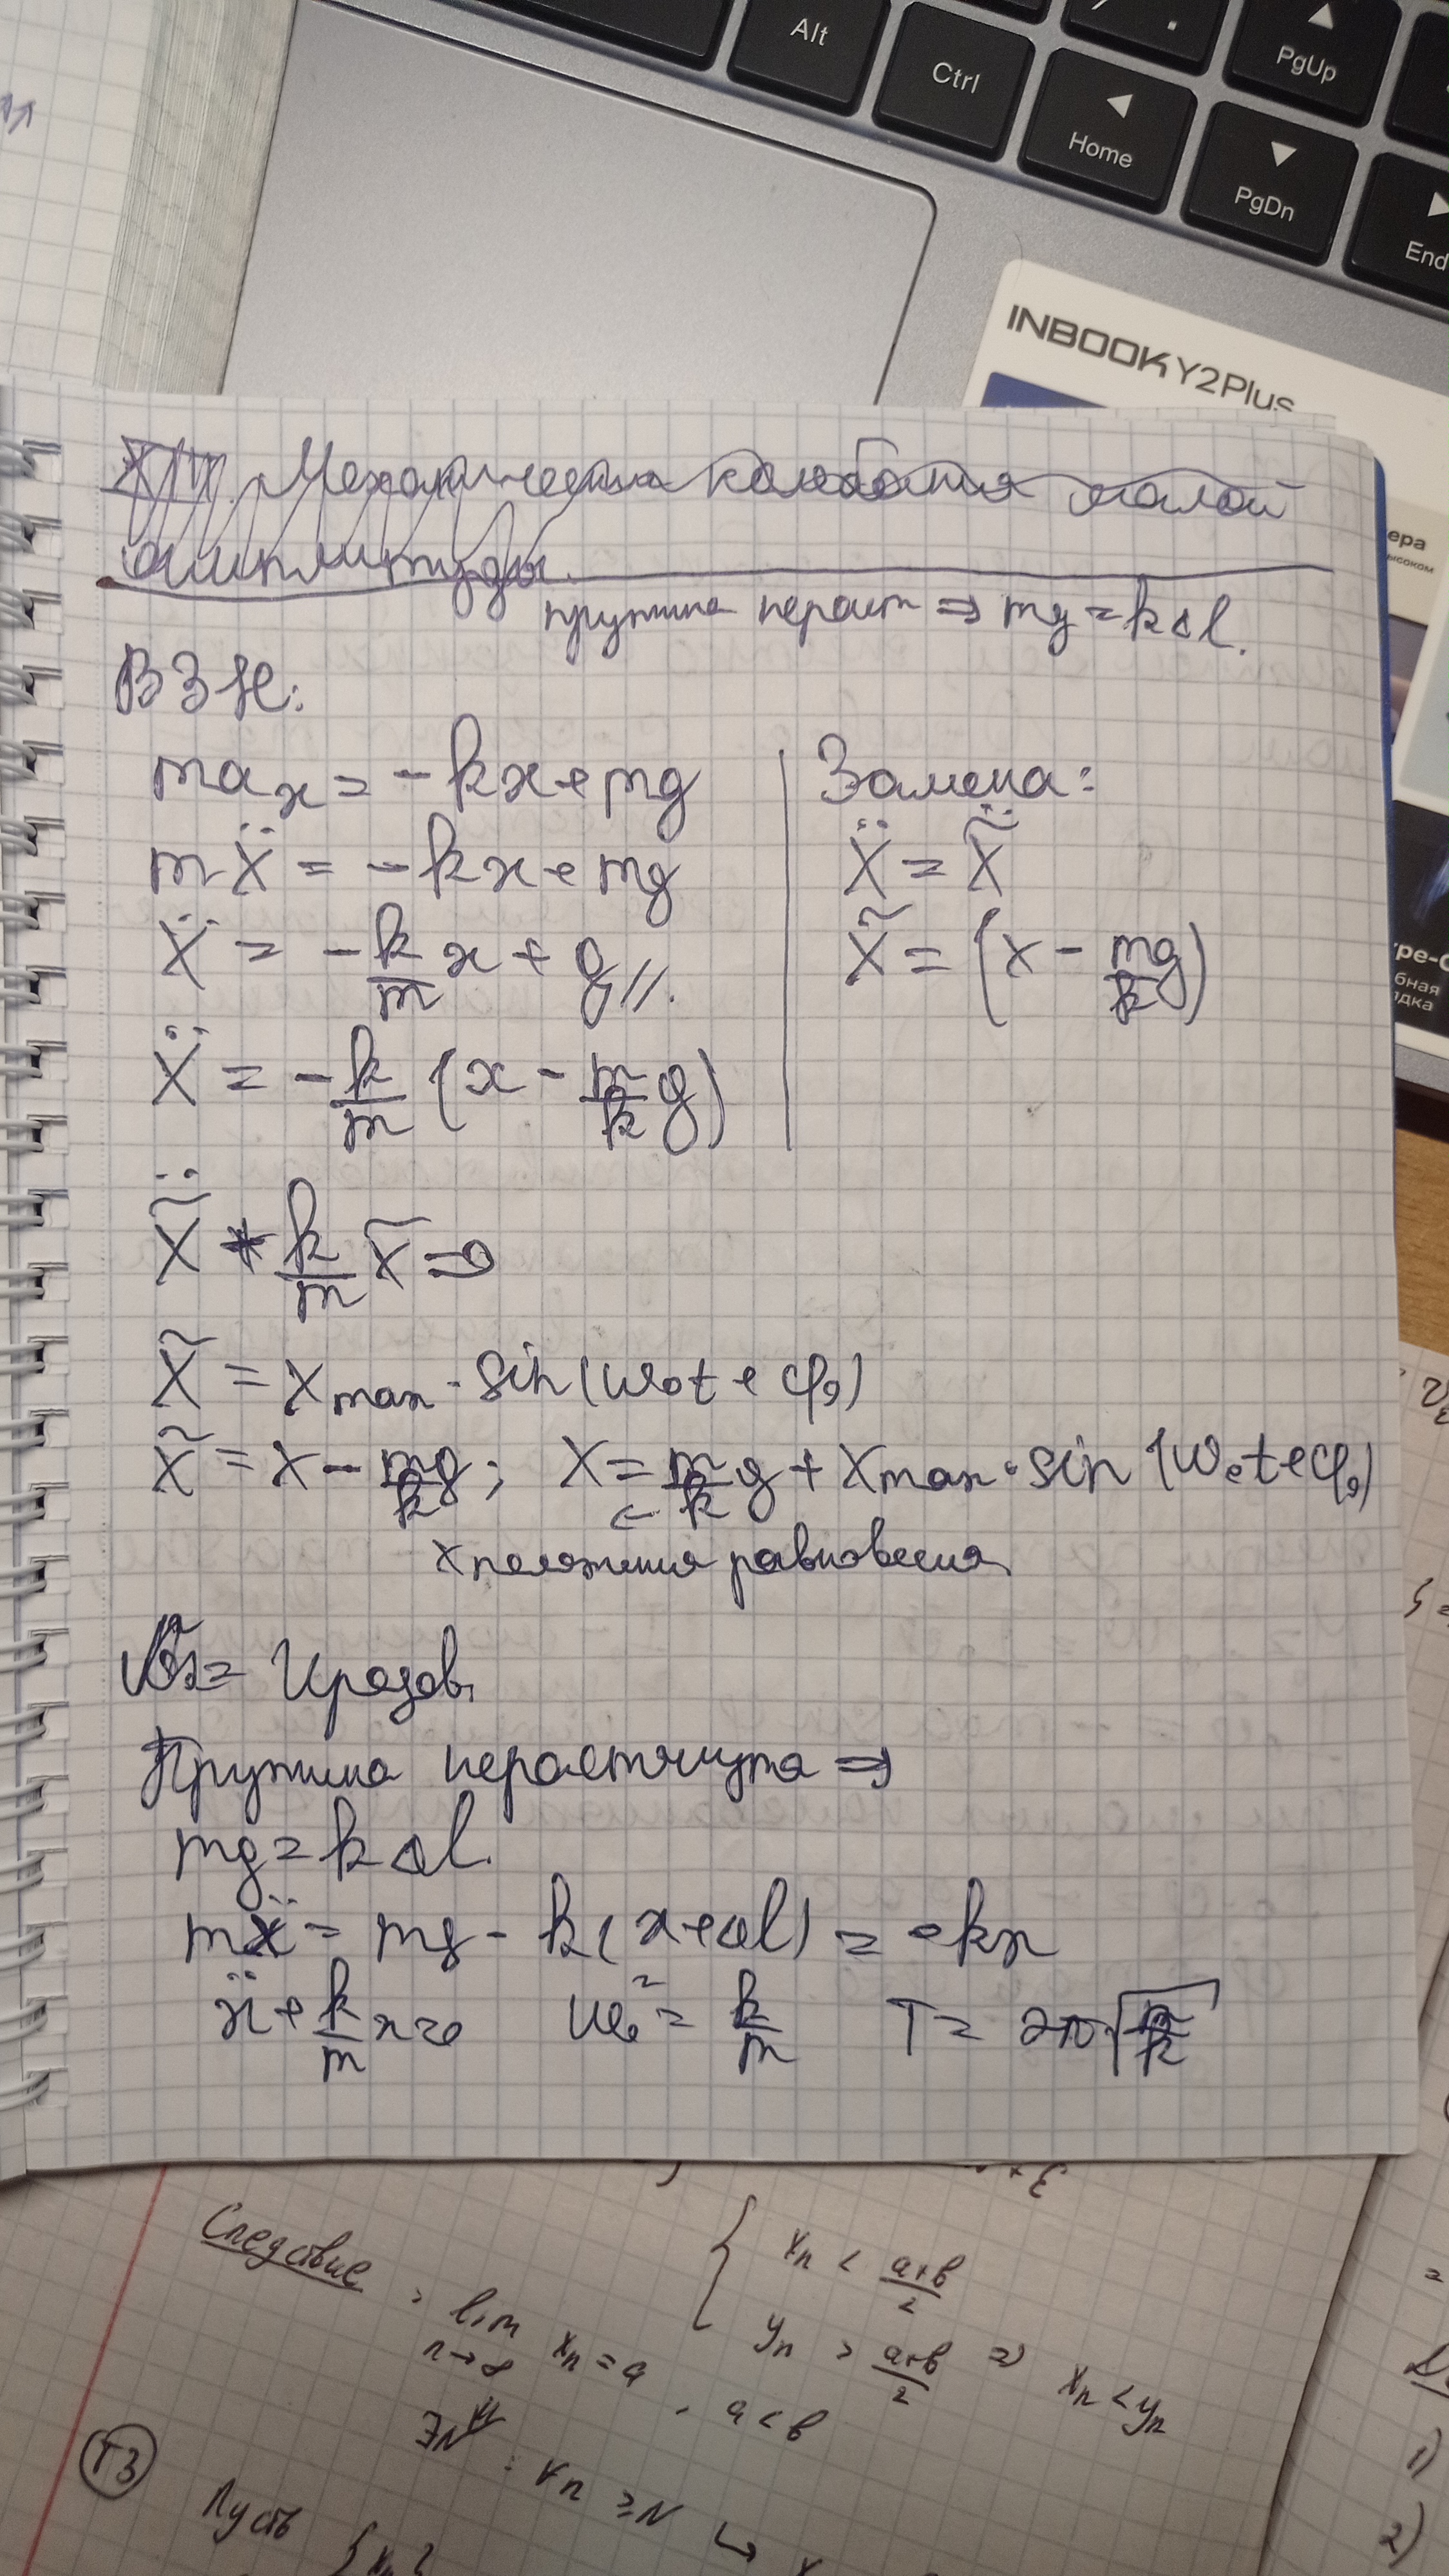 Alt
Ctrl
PgUp
Home
PgDn
End
INBOOK Y2Plus
ера
высоком
XIV. Механические колебания малой
амплитуды.
пружина нераст ⇒ mg = kΔl.
ВЗН:
ma_x = -kx + mg
mẍ = -kx + mg
ẍ = -k/m x + g //.
ẍ = -k/m (x - m/k g)
Замена:
ẍ = x̃̈
x̃ = (x - mg/k)
x̃̈ + k/m x̃ = 0
x̃ = x_max · sin(ω₀t + φ₀)
x̃ = x - mg/k; x = m/k g + x_max · sin(ω₀t + φ₀)
x положения равновесия
Пружина нерастянута ⇒
mg = kΔl.
mẍ = mg - k(x + Δl) = -kx
ẍ + k/m x = 0 ω₀² = k/m T = 2π√(m/k)
Следствие
lim x_n = a, a < b
n→∞
{ x_n < (a+b)/2
y_n > (a+b)/2 ⇒ x_n < y_n
∃N : ∀n ≥ N ↪ x
T3
Пусть {x_n}
1)
2)